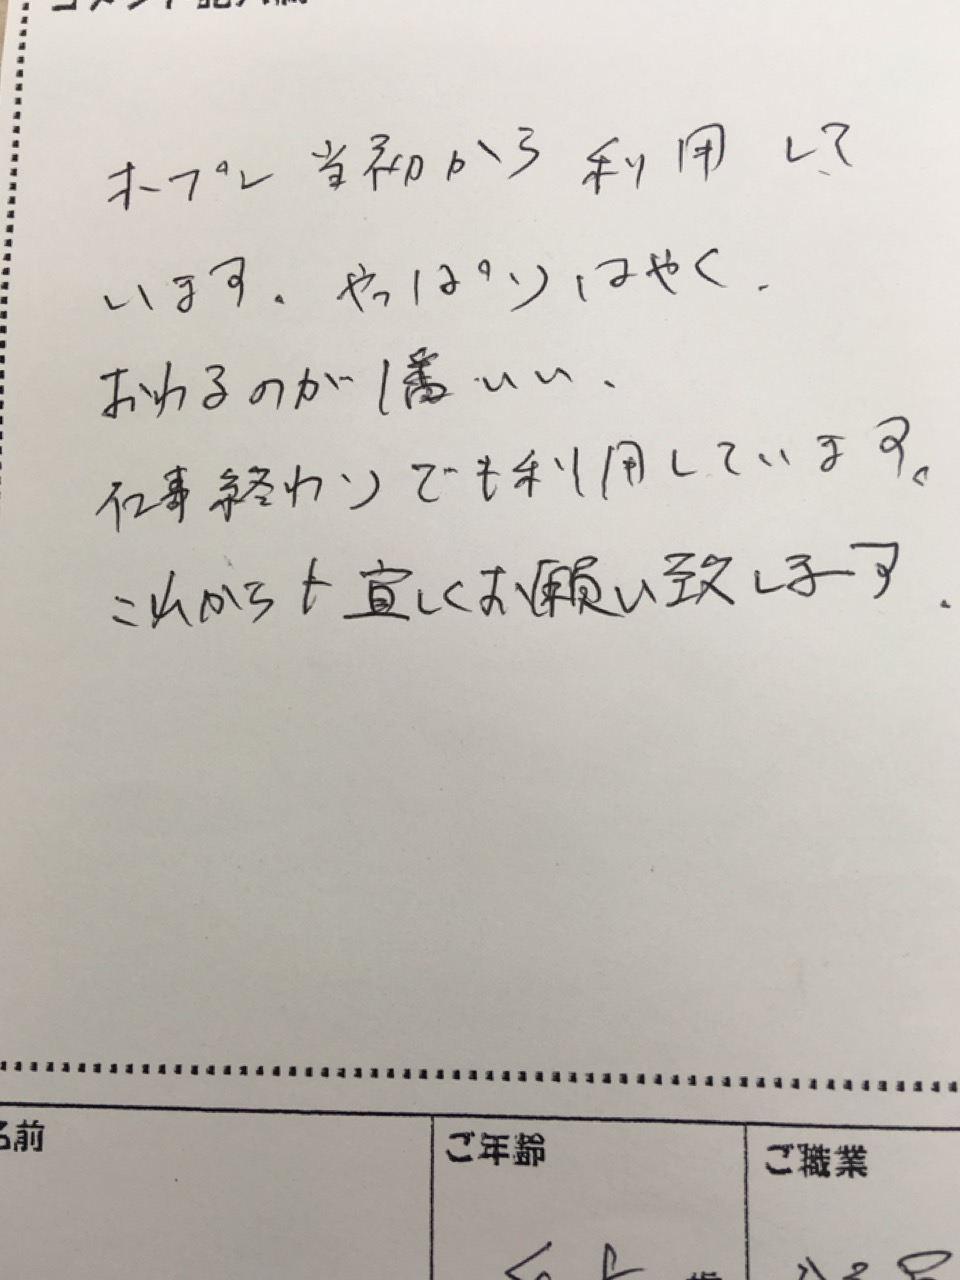 コメント記入欄
オープン当初から利用して
います。やっぱりはやく.
おわるのが1番いい.
仕事終わりでも利用しています。
これからも宜しくお願い致します.
名前
ご年齢
ご職業
歳